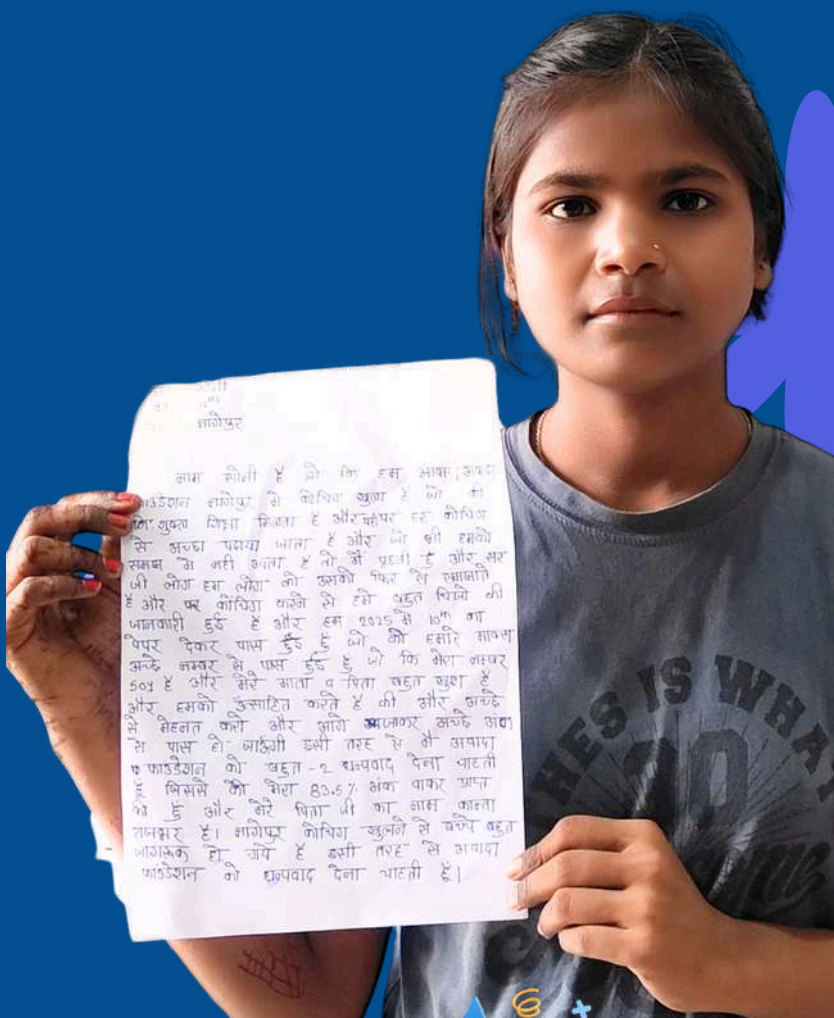 10th
नागेपुर
नाम सोनी है जो कि हम आवादा
फाउंडेशन नागेपुर मे कोचिंग खुला है जो की
शुक्ल शिक्षा मिलता है और यहां पर हर कोचिंग
से अच्छा पढाया जाता है और जो भी हमको
समझ मे नही आता है तो मै पूछती हूँ और सर
जी लोग हम लोग को उसको फिर से समझाते
है और पर कोचिंग करने से हमे बहुत चिजो की
जानकारी हुई है और हम 2025 मे 10th का
पेपर देकर पास हुई हूँ जो की हमारे मार्क्स
अच्छे नम्बर से पास हुई हूँ जो कि मेरा नम्बर
501 है और मेरे माता व पिता बहुत खुश है
और हमको उत्साहित करते है की और अच्छे
से मेहनत करो और आगे जाकर अच्छे अंक
से पास हो जाऊंगी इसी तरह से मै आवादा
फाउंडेशन को बहुत-2 धन्यवाद देना चाहती
हूँ जिससे की मेरा 83.5% अंक पाकर प्राप्त
की हूँ और मेरे पिता जी का नाम कान्ता
राजभर है। नागेपुर कोचिंग खुलने से बच्चे बहुत
जागरूक हो गये है इसी तरह से आवादा
फाउंडेशन को धन्यवाद देना चाहती हूँ।
HES IS WHA